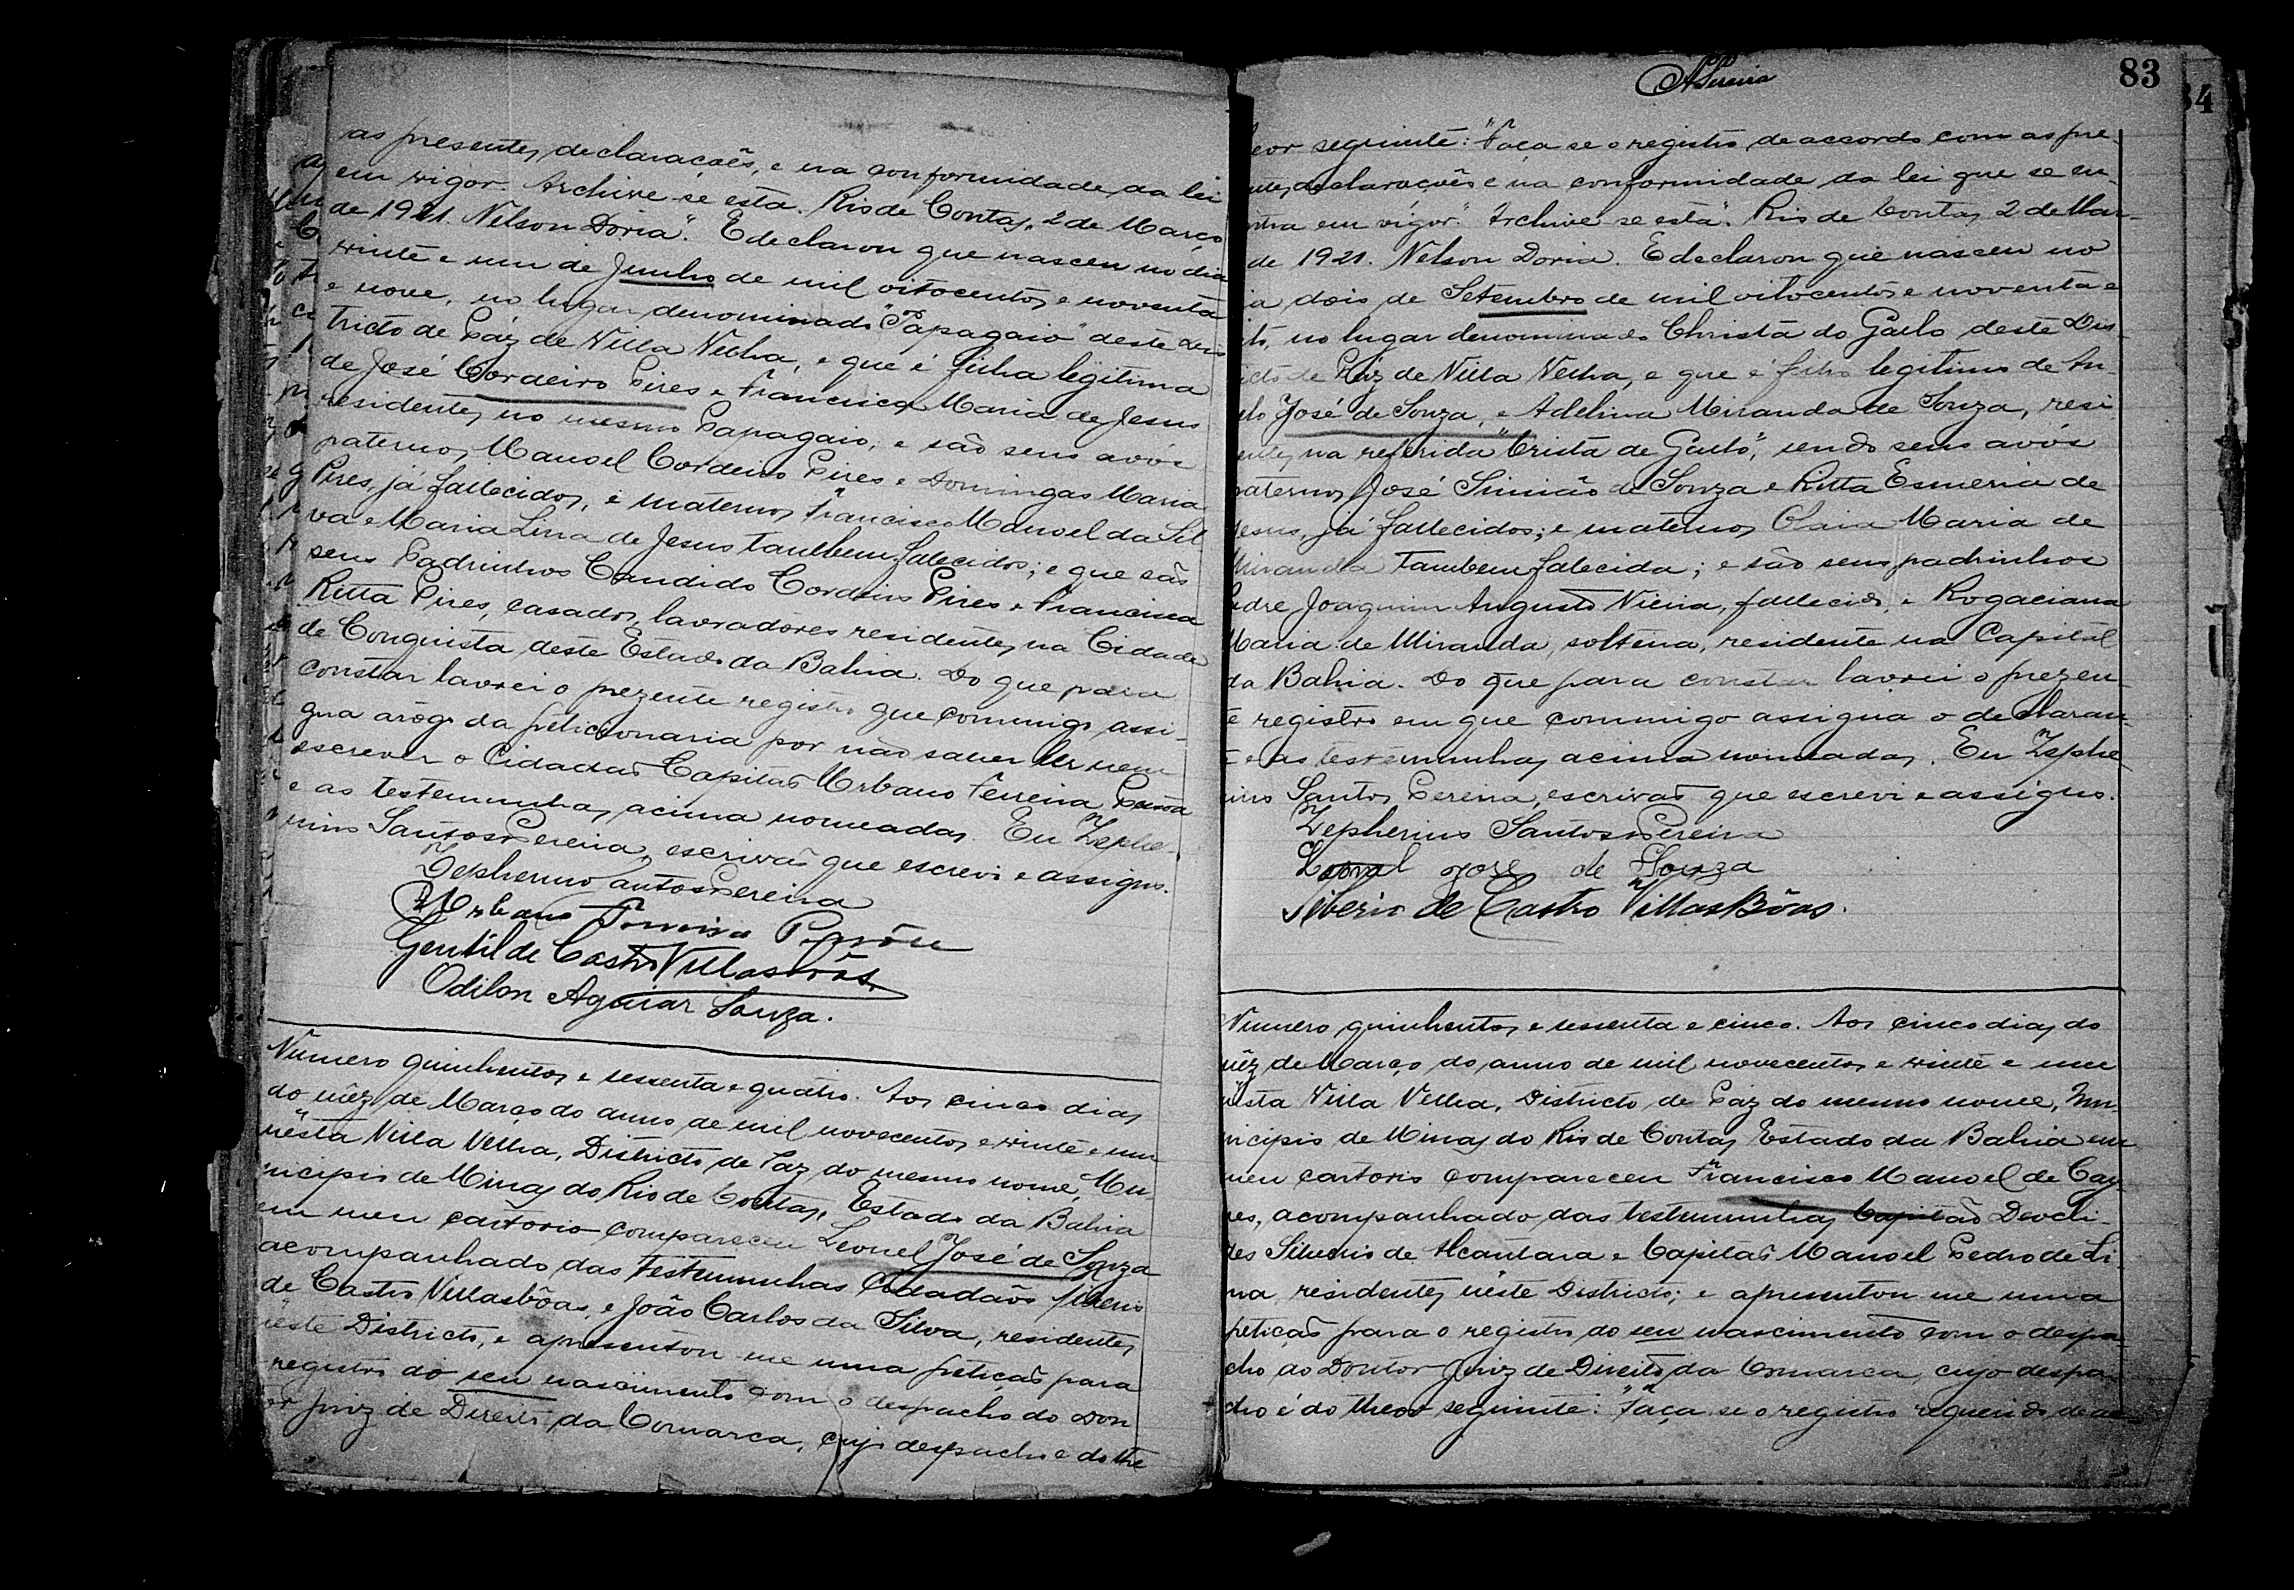 as presentes declaracoẽs, e na conformidade da lei
em vigor. Archive-se esta. Rio de Contas, 2 de Março
de 1921. Nelson Doria". E declarou que nasceu no dia
vinte e um de Junho de mil oitocentos e noventa
e nove, no lugar denominado "Papagaio" deste Dis
tricto de Páz de Villa Velha, e que é filha legitima
de José Cordeiro Pires e Francisca Maria de Jesus
residentes no mesmo Papagaio, e são seus avós
paternos Manoel Cordeiro Pires e Domingas Maria
Pires, já fallecidos, e maternos Francisco Manoel da Sil
va e Maria Lina de Jesus tambem falecidos; e que são
seus Padrinhos Candido Cordeiro Pires e Francisca
Ritta Pires, casados, lavradores residentes na Cidade
de Conquista deste Estado da Bahia. Do que para
constar lavrei o prezente registro que commigo assi-
gna arogo da peticionaria por não saber ler nem
escrever o Cidadão Capitão Urbano Ferreira Pessôa
e as testemunhas acima nomeadas. Eu Zephe-
rino Santos Pereira, escrivão que escrevi e assigno.
Zepherino Santos Pereira
Urbano Ferreira Pessôa
Gentil de Castro Villasbôas.
Odilon Aguiar Souza.
Numero quinhentos e sessenta e quatro. Aos cinco dias
do mêz de Março do anno de mil novecentos e vinte e um
nésta Villa Velha, Districto de Paz do mesmo nome, Mu-
nicipio de Minas do Rio de Contas, Estado da Bahia
em meu cartorio compareceu Leonel José de Souza
acompanhado das testemunhas Cidadãos Siberio
de Castro Villasbôas, e João Carlos da Silva, residentes
nêste Districto, e apresentou-me uma petição para
registro do seu nascimento com o despacho do Dou
or Juiz de Direito da Comarca, cujo despacho e do the
Pereira
83
84
eor seguinte: "Faça se o registro de accordo com as pre-
ntes declarações e na conformidade da lei que se en-
ntra em vigor." Archive se esta". Rio de Contas 2 de Mar-
de 1921. Nelson Doria. E declarou que nasceu no
ia dois de Setembro de mil oitocentos e noventa e
ito, no lugar denominado Christa do Gallo deste Dis-
icto de Páz de Villa Velha, e que é filho legitimo de An-
elo José de Souza, e Adelina Miranda de Souza, resi-
entes na referida "Crista de Gallo", sendo seus avós
paternos José Simião de Souza e Ritta Esmeria de
Jesus, já fallecidos; e maternos Maria de
Miranda tambem falecida; e são seus padrinhos
Padre Joaquim Augusto Vieira, fallecido, e Rogaciana
Maria de Miranda, solteira, residente na Capital
da Bahia. Do que para constar lavrei o prezen-
te registro em que commigo assigna o declaran-
te e as testemunhas acima nomeadas. Eu Zephe
rino Santos Pereira, escrivão que escrevi e assigno.
Zepherino Santos Pereira
Leonel José de Souza
Siberio de Castro Villas Bôas.
Numero quinhentos e sessenta e cinco. Aos cinco dias do
mêz de Março do anno de mil novecentos e vinte e um
nésta Villa Velha, Districto de Paz do mesmo nome, Mu-
nicipio de Minas do Rio de Contas Estado da Bahia em
meu cartorio compareceu Francisco Manoel de Cay-
res, acompanhado das testemunhas Capitão Deocli-
des Silverio de Alcantara e Capitão Manoel Pedro de Li-
ma, residentes nêste Districto; e apresentou me uma
petição para o registro do seu nascimento com o despa-
cho do Doutor Juiz de Direito da Comarca, cujo despa-
cho é do theor seguinte: "Faça se o registro requerido de ac-